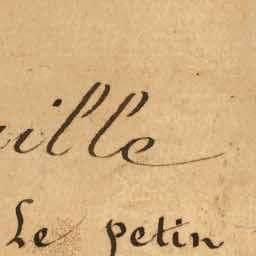 ille
Le petin